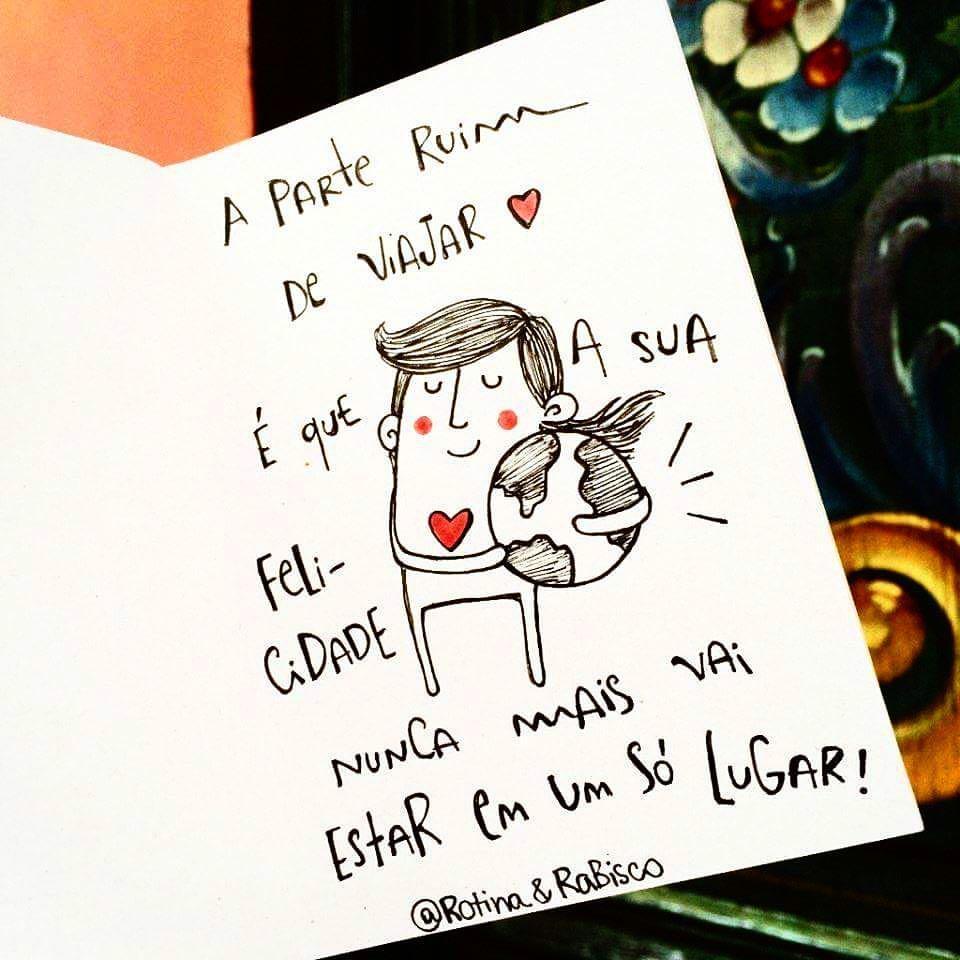 A PARTE RUIM
DE VIAJAR
É QUE A SUA
FELI-
CIDADE
NUNCA MAIS VAI
ESTAR EM UM SÓ LUGAR!
@Rotina & RaBisco